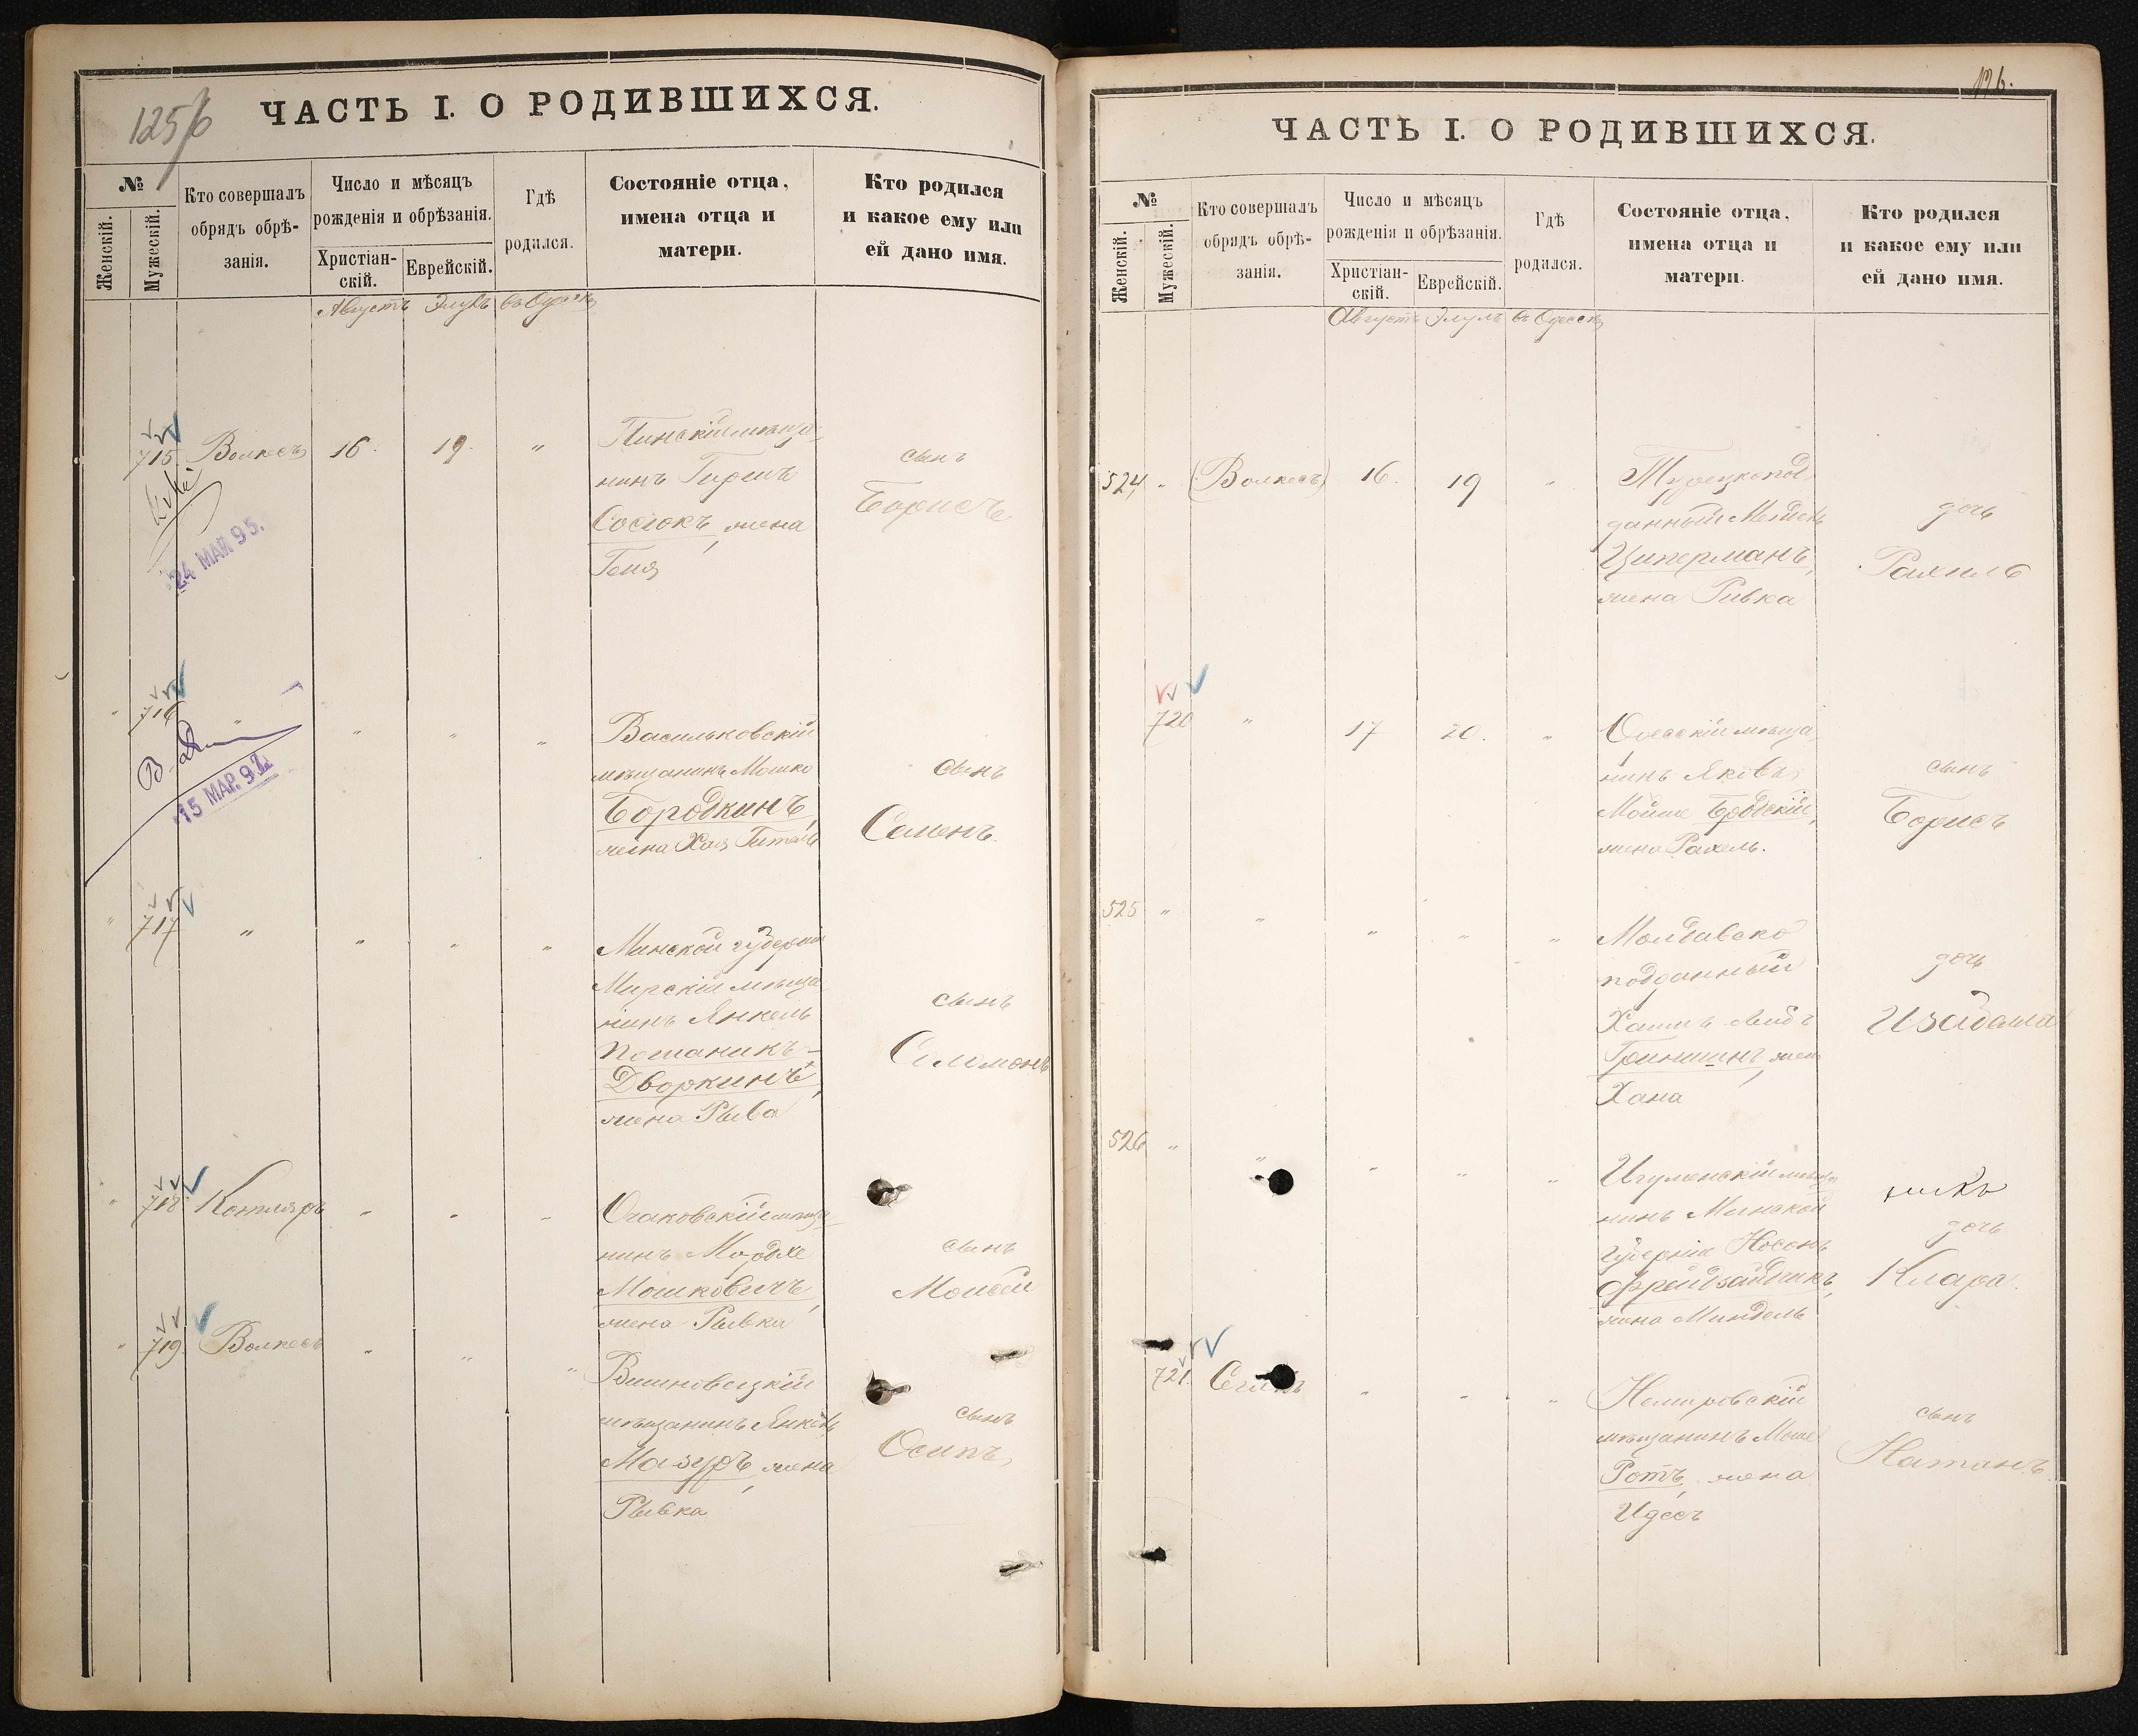 125
ЧАСТЬ I. О РОДИВШИХСЯ.
№
Женскій.
Мужескій.
Кто совершалъ
обрядъ обрѣ-
занія.
Число и мѣсяцъ
рожденія и обрѣзанія.
Христіан-
скій.
Еврейскій.
Гдѣ
родился.
Состояніе отца,
имена отца и
матери.
Кто родился
и какое ему или
ей дано имя.
Августъ Элулъ въ Одессѣ
715 Волкесъ 16. 19. "
Пинскій мѣща-
нинъ Гиршъ
Соснокъ, жена
Геня
сынъ
Борисъ
24 МАР. 95.
" 716 " " " "
Васильковскій
мѣщанинъ Мошко
Бородкинъ,
жена Хая Гитель
сынъ
Семенъ.
15 МАР. 92.
" 717 " " " "
Минской губерніи
Мирскій мѣща-
нинъ Янкель
Дворкинъ,
жена Рыва
сынъ
Соломонъ
" 718 Котляръ " " "
Очаковскій мѣща-
нинъ Мордхе
Мошковичъ,
жена Рывка
сынъ
Моисей
" 719 Волкесъ " " "
Вишновецкій
мѣщанинъ Янкель
Мазуръ, жена
Рывка
сынъ
Осипъ
126.
ЧАСТЬ I. О РОДИВШИХСЯ.
№
Женскій.
Мужескій.
Кто совершалъ
обрядъ обрѣ-
занія.
Число и мѣсяцъ
рожденія и обрѣзанія.
Христіан-
скій.
Еврейскій.
Гдѣ
родился.
Состояніе отца,
имена отца и
матери.
Кто родился
и какое ему или
ей дано имя.
Августъ Элулъ въ Одессѣ
524 " (Волкесъ) 16. 19 "
Турецкопод
данный Мендель
Циперманъ,
жена Ривка
дочь
Рахиль
720 " 17 20. "
Одесскій мѣща
нинъ Яковъ
Мойше Бродскій,
жена Рахель.
сынъ
Борисъ
525 " " " " "
Молдавско
подданный
Хаимъ Лейбъ
жена
Хана
дочь
526 " " " " "
Игуменскій мѣща
нинъ Минской
губерніи Носонъ
жена Миндель
дочь
Клара.
721. " " "
Немировскій
мѣщанинъ Моше
Ротъ, жена
Идесъ
сынъ
Натанъ